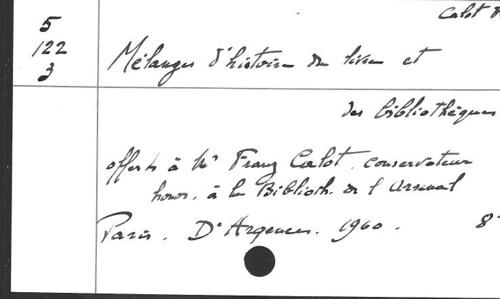 Calot
5
122
3
Mélanges d'histoire du livre et
des bibliothèques
offerts à Mr Franz Calot, conservateur
honor. à la Biblioth. de l'Arsenal
Paris. D'Argences. 1960. 8°